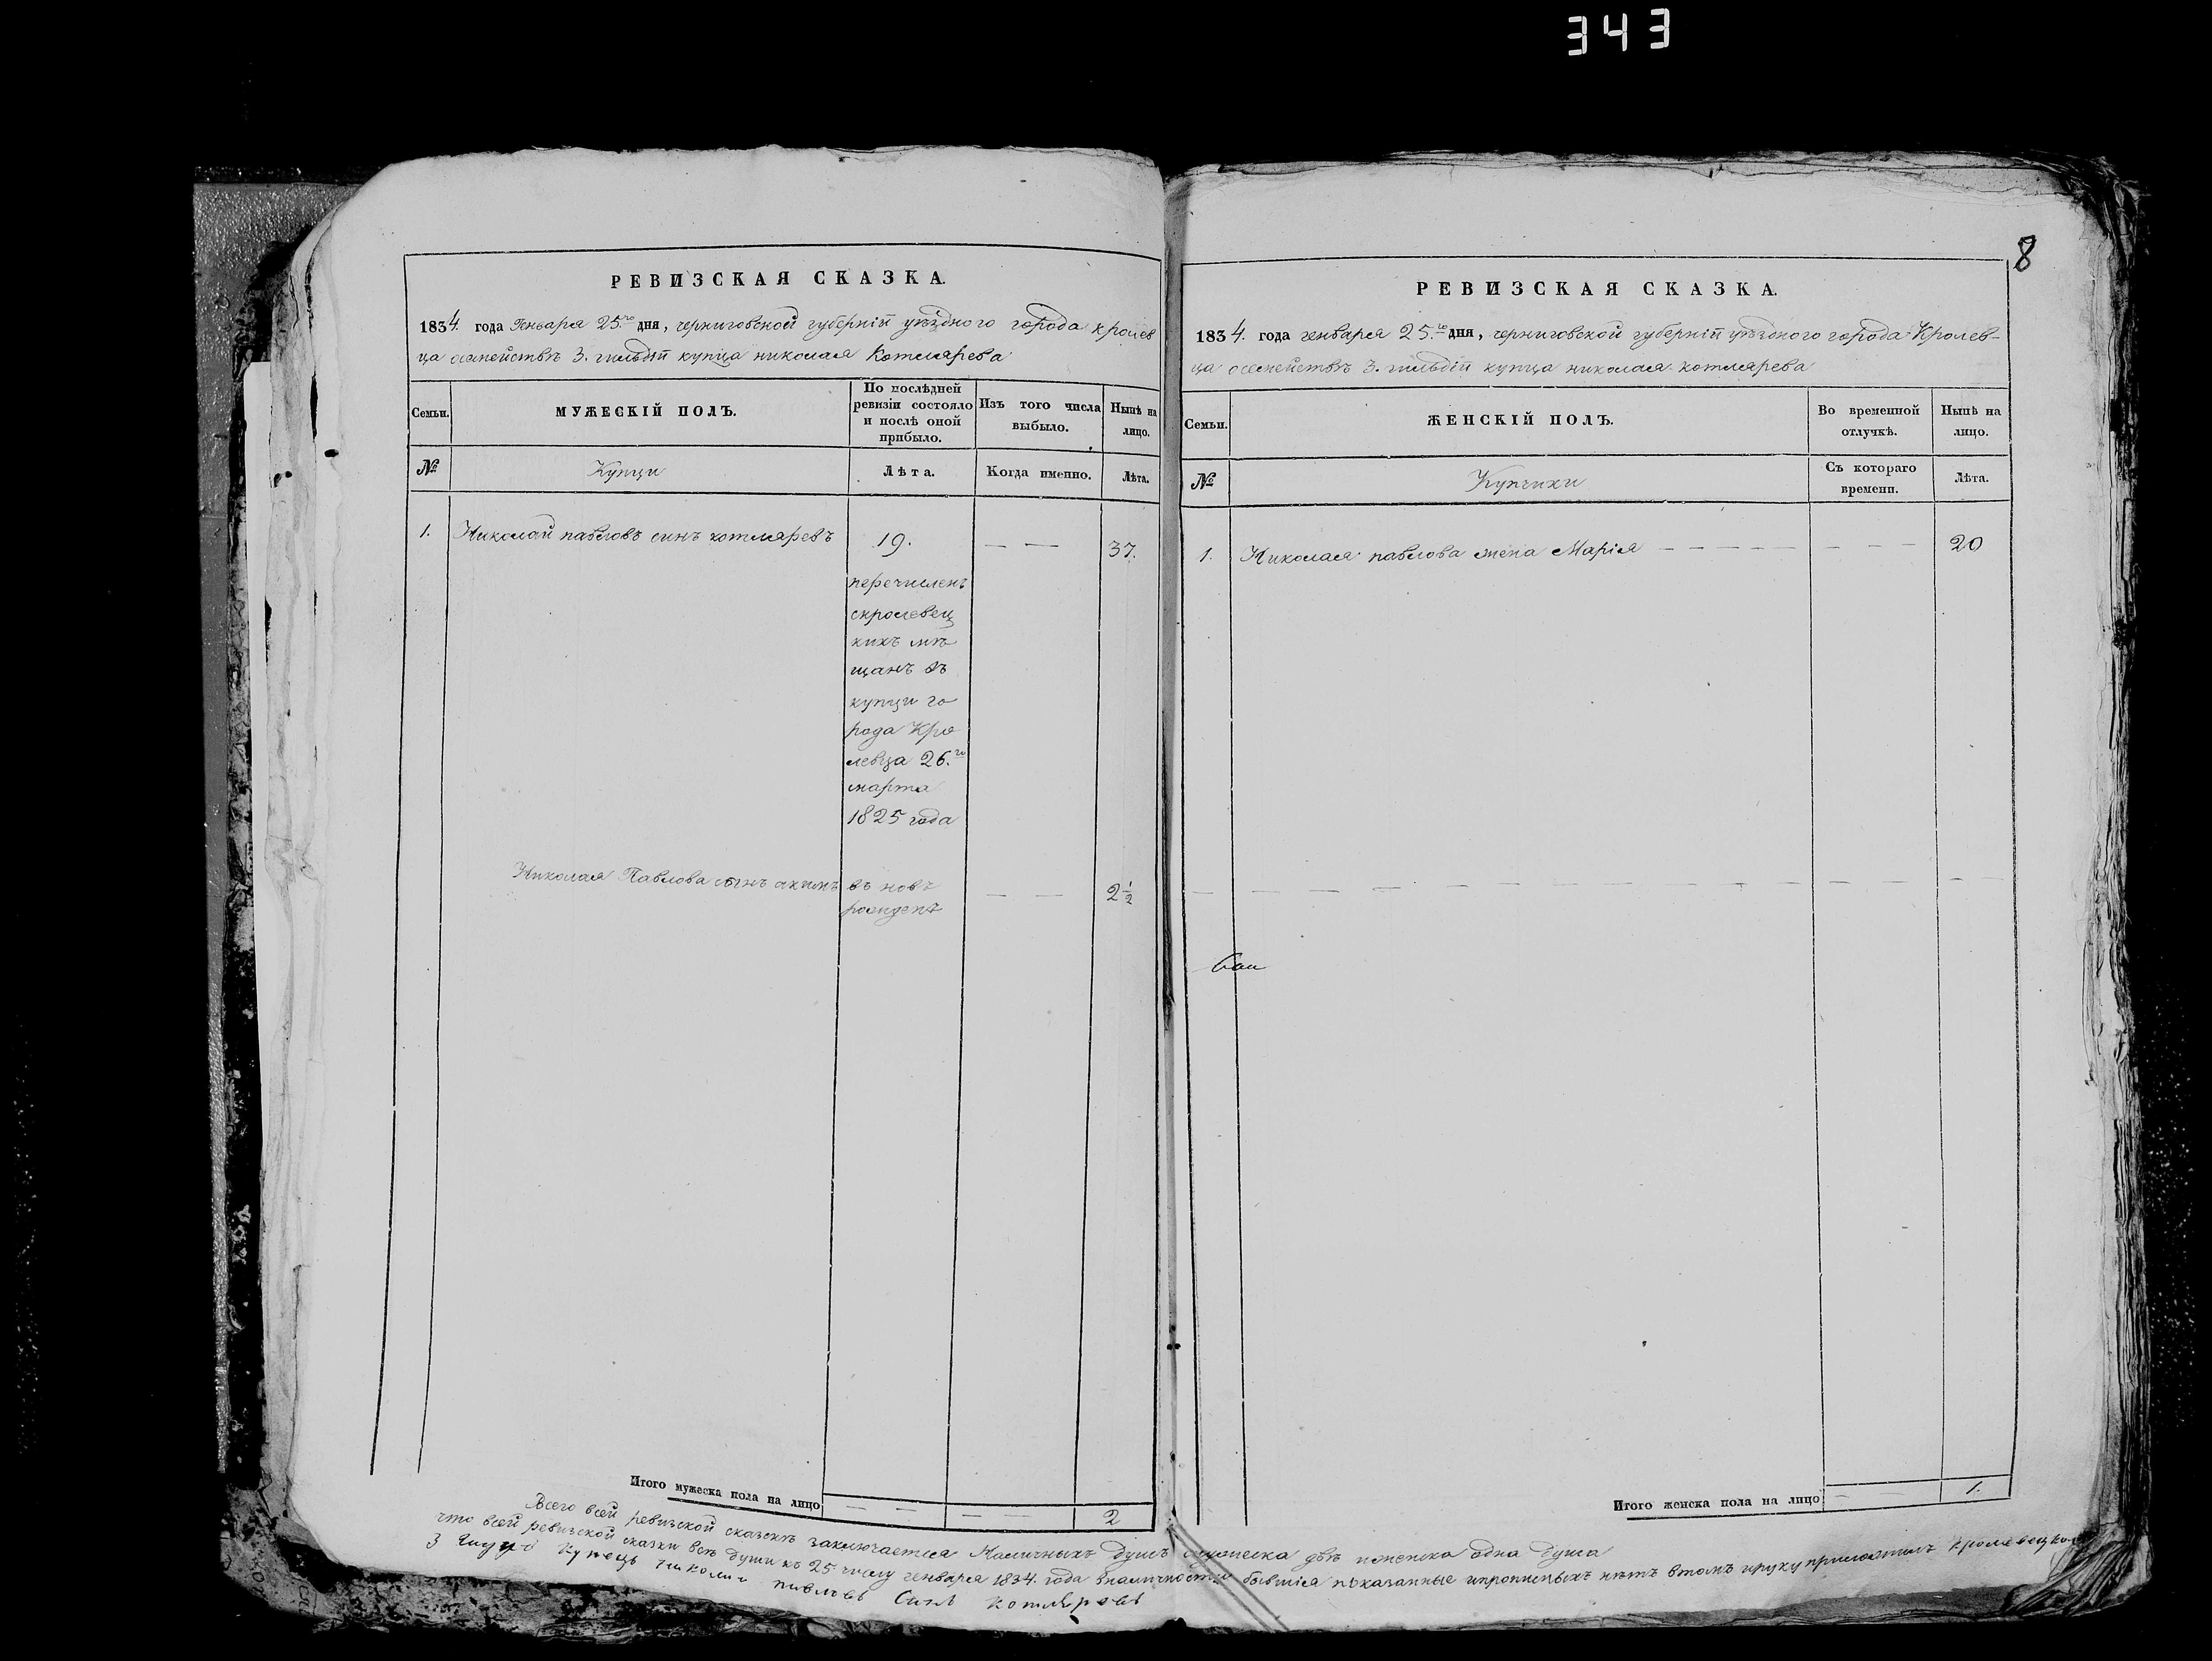 343
8
РЕВИЗСКАЯ СКАЗКА.
1834. года Генваря 25.го дня, черниговской губерніи уѣзднаго города кролев
ца осемействѣ 3. гильдіи купца николая Котлярева
Семьи.
МУЖЕСКІЙ ПОЛЪ.
По послѣдней ревизіи состояло и послѣ оной прибыло.
Изъ того числа выбыло.
Нынѣ на лицо.
№
Купци
Лѣта.
Когда именно.
Лѣта.
1. Николай павловъ синъ котляревъ 19. — — 37.
перечисленъ
скролевец
кихъ мѣ
щанъ въ
купци го
рода Кро
левца 26.го
марта
1825 года
Николая Павлова сынъ акимъ въ новѣ — — 2 1/2
рожденъ
Итого мужеска пола на лицо — — — — 2
РЕВИЗСКАЯ СКАЗКА.
1834. года генваря 25.го дня, черниговской губерніи уѣздного города Кролев-
ца осемействѣ 3. гильдіи купца николая котлярева
Семьи.
ЖЕНСКІЙ ПОЛЪ.
Во временной отлучкѣ.
Нынѣ на лицо.
№
Купчихи
Съ котораго времени.
Лѣта.
1. Николая павлова жена Марія — — — — — — — — 20
Итого женска пола на лицо — — 1.
Всего всей ревизской сказскѣ заключается Наличныхъ душъ мужеска двѣ иженска одна душа
что всей ревизской сказки всѣ души къ 25 числу генваря 1834. года вналичности бывшія показанные ипрописныхъ нѣтъ втомъ ируку приложилъ кролевецкой
3 купецъ николай павловъ Синъ котляровъ